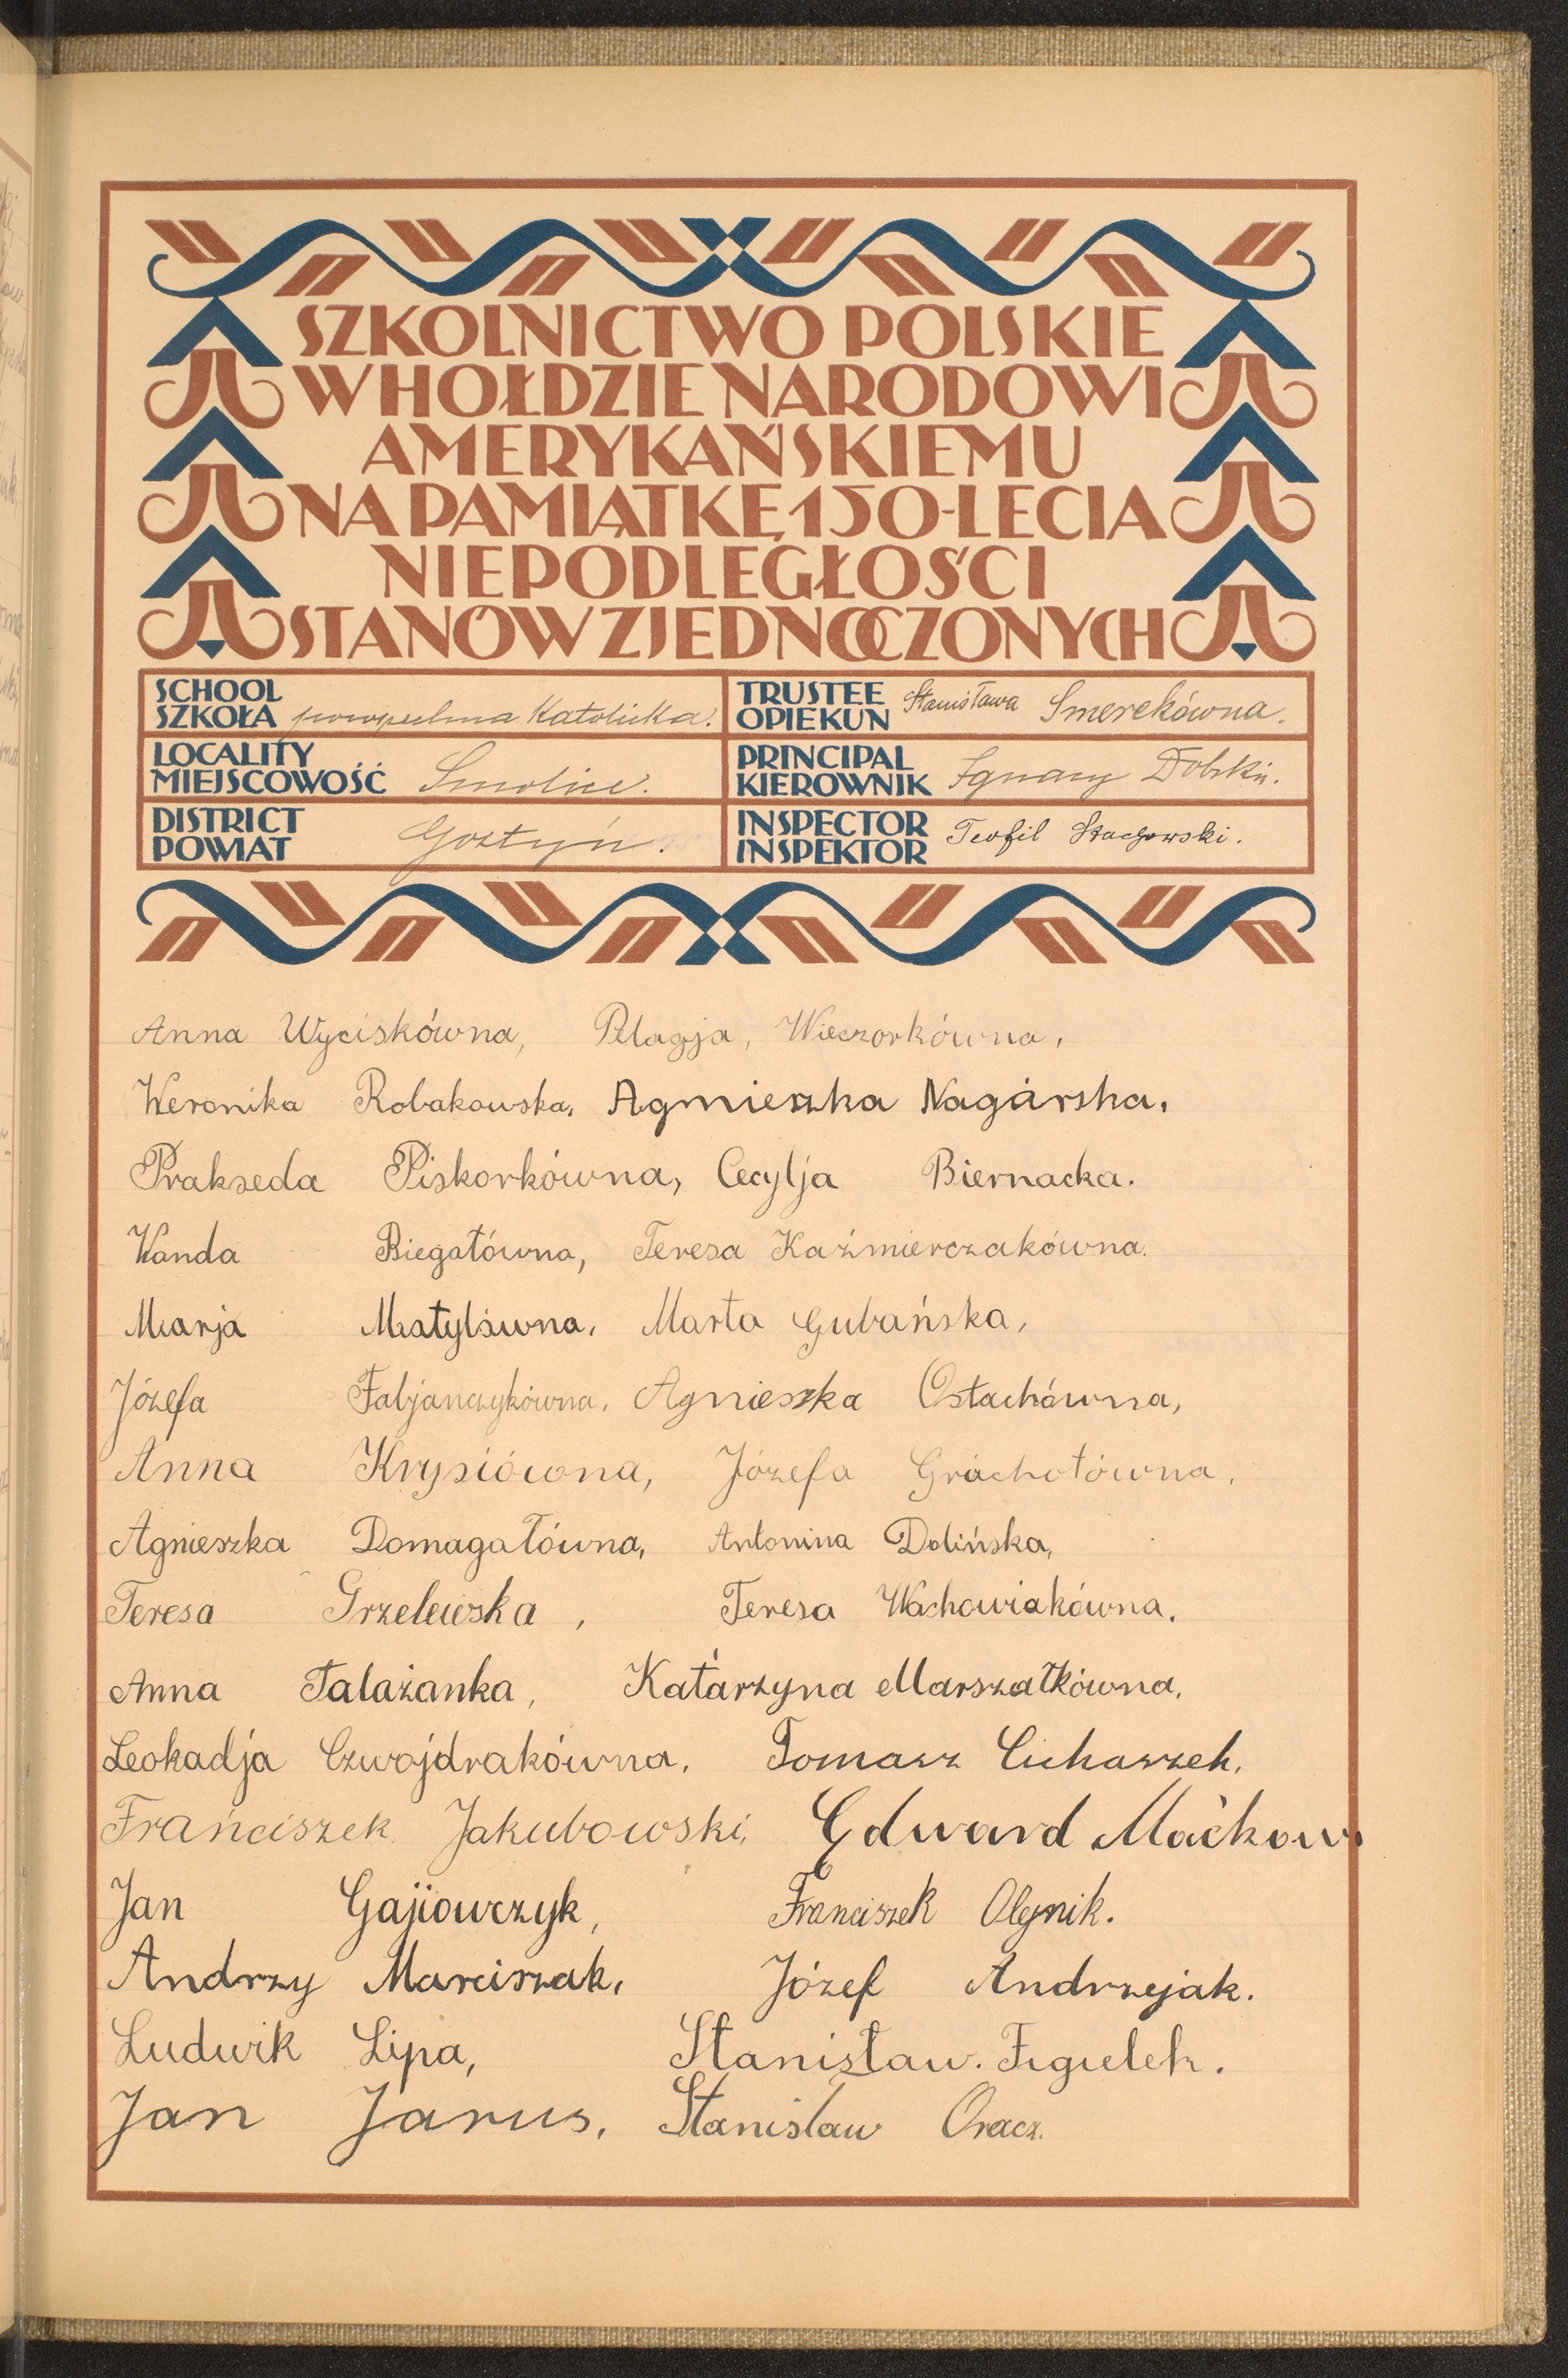 SZKOLNICTWO POLSKIE
W HOŁDZIE NARODOWI
AMERYKAŃSKIEMU
NA PAMIĄTKĘ 150-LECIA
NIEPODLEGŁOŚCI
STANÓW ZJEDNOCZONYCH
SCHOOL
SZKOŁA powszechna Katolicka.
TRUSTEE
OPIEKUN Stanisława Smerekówna.
LOCALITY
MIEJSCOWOŚĆ Smolice.
PRINCIPAL
KIEROWNIK Ignacy Dolski.
DISTRICT
POWIAT Gostyń.
INSPECTOR
INSPEKTOR Teofil Stachowski.
Anna Wyciskówna, Pelagja, Wieczorkówna,
Weronika Robakowska, Agnieszka Nagórska,
Prakseda Piskorkówna, Cecylja Biernacka.
Wanda Biegałówna, Teresa Kaźmierczakówna.
Marja Matylówna, Marta Gubańska,
Józefa Fabjanczykówna, Agnieszka Ostachówna,
Anna Krysiówna, Józefa Grachotówna,
Agnieszka Domagałówna, Antonina Dolińska,
Teresa Grzelewska, Teresa Wachowiakówna,
Anna Talażanka, Katarzyna Marszałkówna,
Leokadja Czwojdrakówna, Tomasz Cichaszek,
Franciszek Jakubowski, Edward Maćkow.
Jan Gajiowczyk, Franciszek Olejnik.
Andrzy Marciszak, Józef Andrzejak.
Ludwik Lipa, Stanisław. Figielek.
Jan Jarus, Stanislaw Oracz.